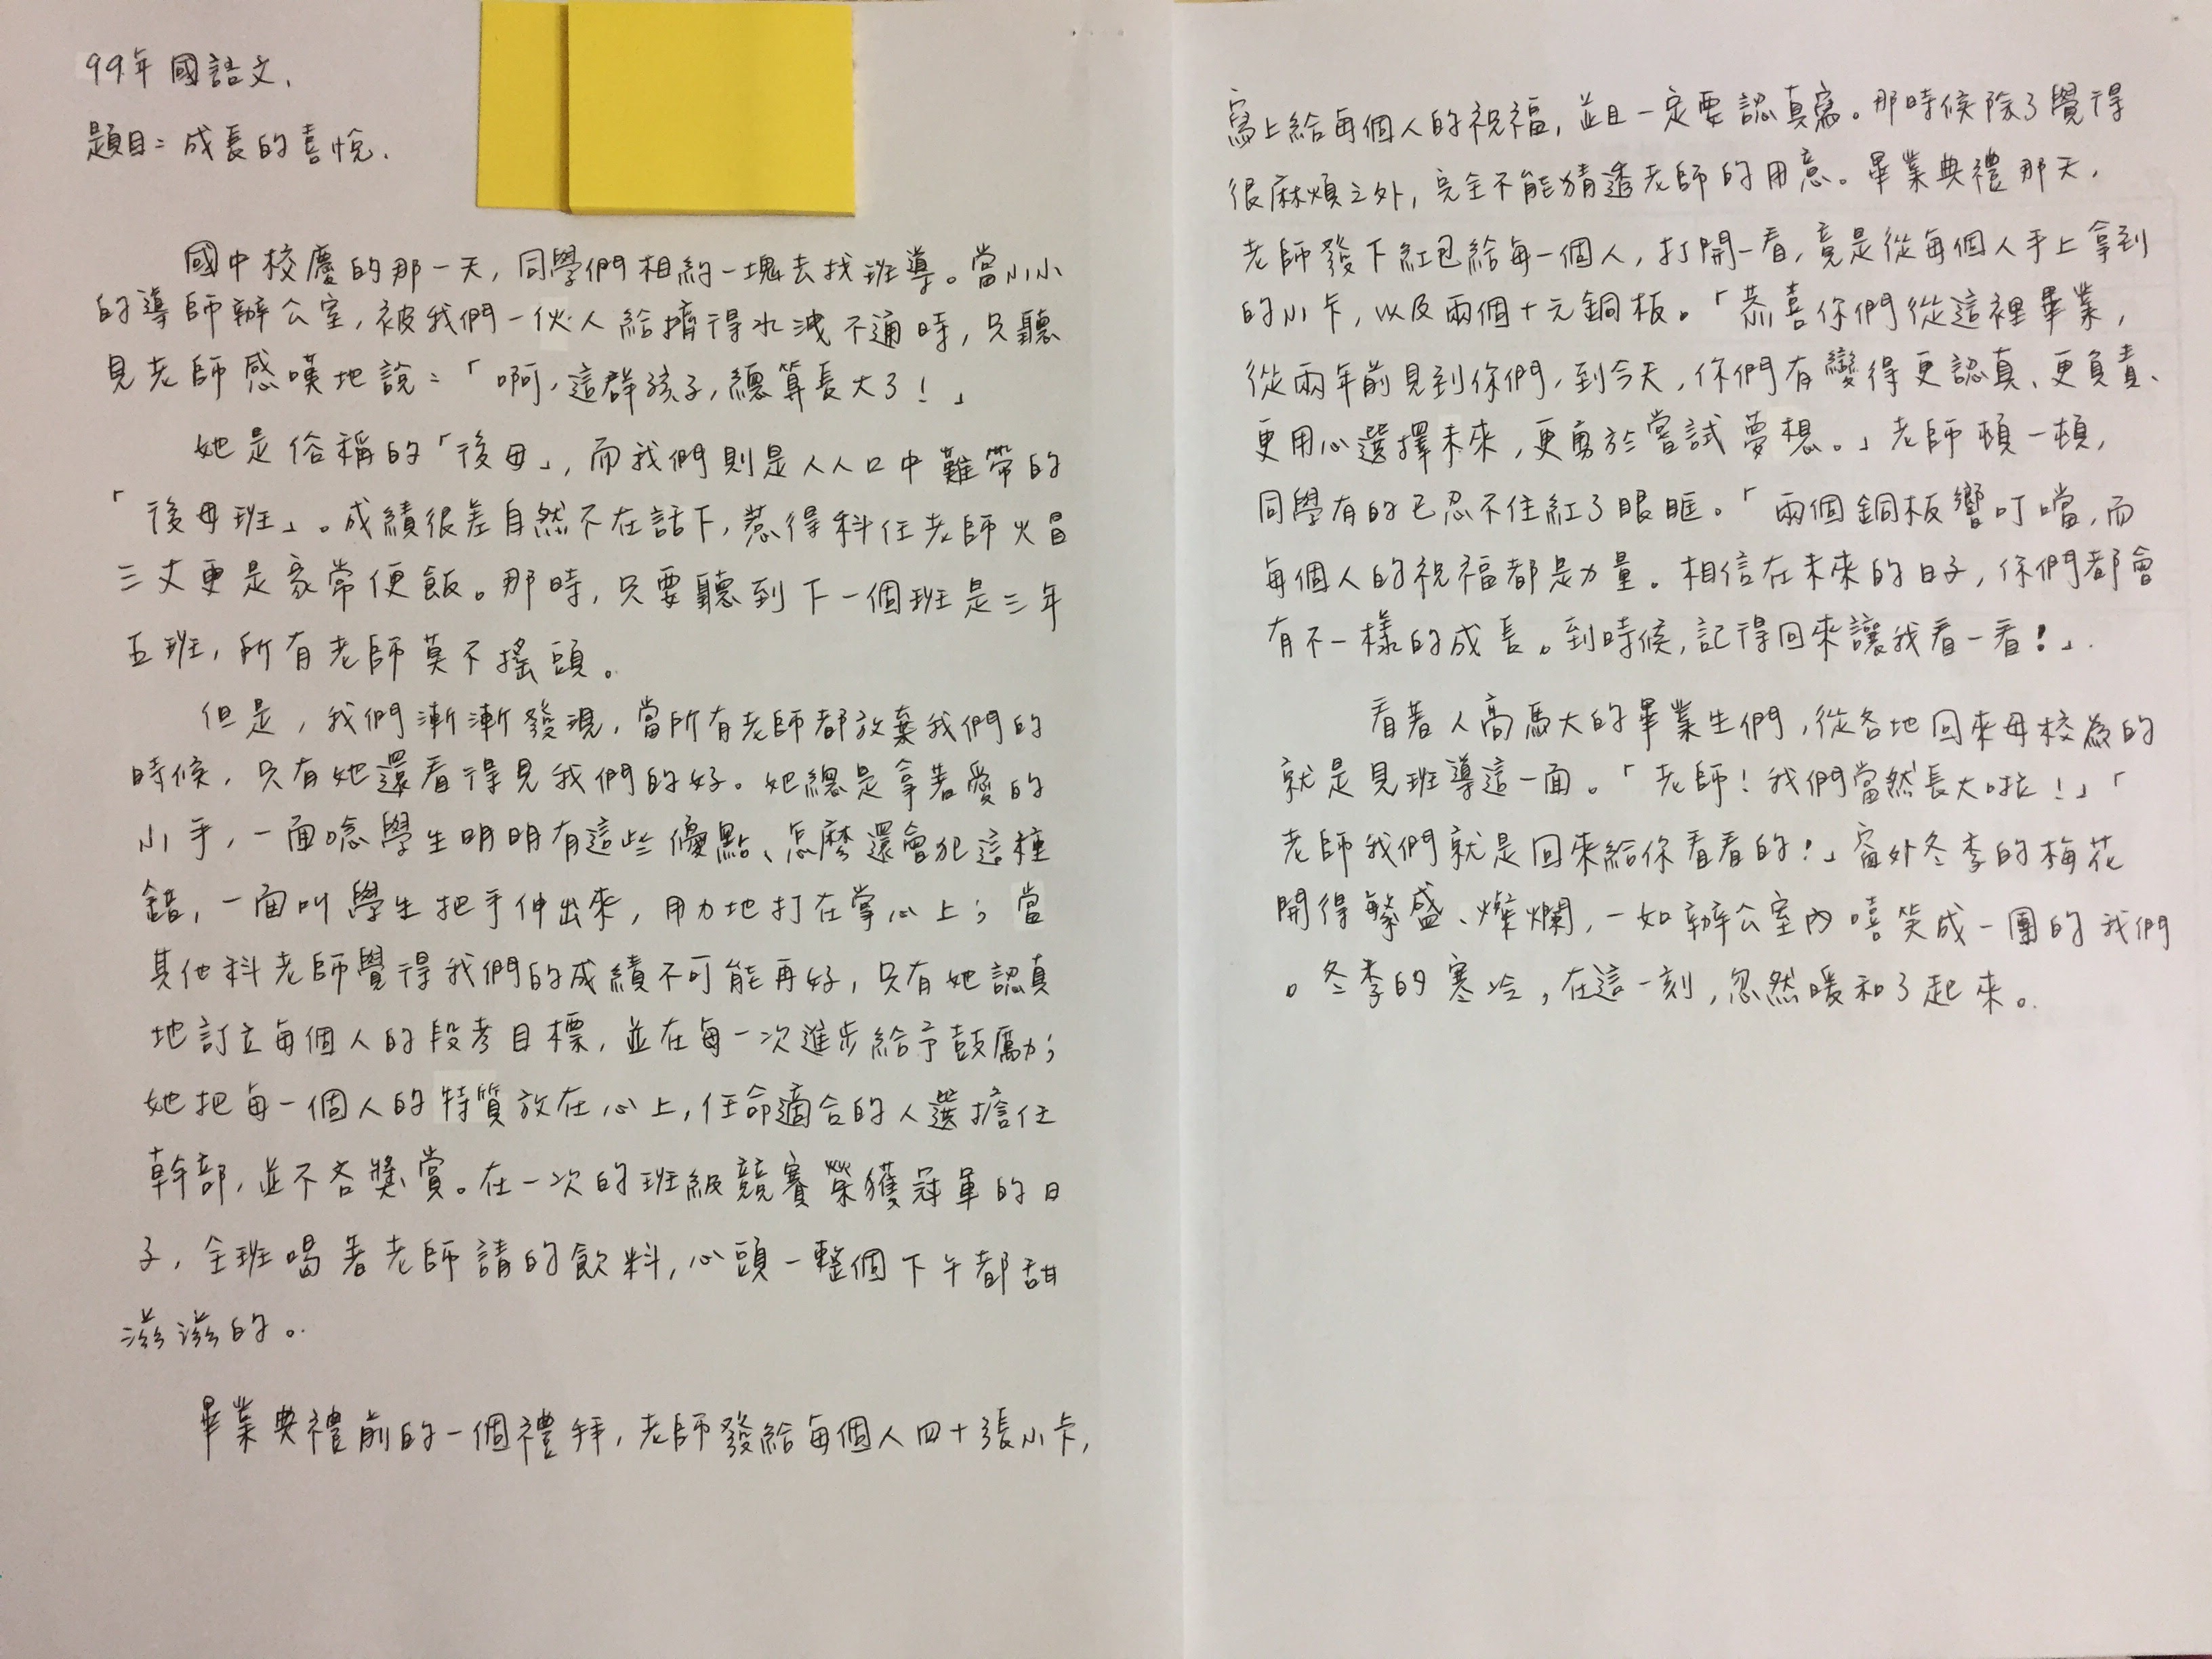 99年國語文.
題目:成長的喜悅.
國中校慶的那一天,同學們相約一塊去找班導。當小小
的導師辦公室,被我們一伙人給擠得水洩不通時,只聽
見老師感嘆地說:「啊,這群孩子,總算長大了!」
她是俗稱的「後母」,而我們則是人人口中難帶的
「後母班」。成績很差自然不在話下,惹得科任老師火冒
三丈更是家常便飯。那時,只要聽到下一個班是三年
五班,所有老師莫不搖頭。
但是,我們漸漸發現,當所有老師都放棄我們的
時候,只有她還看得見我們的好。她總是拿著愛的
小手,一面唸學生明明有這些優點、怎麼還會犯這種
錯,一面叫學生把手伸出來,用力地打在掌心上;當
其他科老師覺得我們的成績不可能再好,只有她認真
地訂立每個人的段考目標,並在每一次進步給予鼓勵;
她把每一個人的特質放在心上,任命適合的人選擔任
幹部,並不吝獎賞。在一次的班級競賽榮獲冠軍的日
子,全班喝著老師請的飲料,心頭一整個下午都甜
滋滋的。
畢業典禮前的一個禮拜,老師發給每個人四十張小卡,
寫上給每個人的祝福,並且一定要認真寫。那時候除了覺得
很麻煩之外,完全不能猜透老師的用意。畢業典禮那天,
老師發下紅包給每一個人,打開一看,竟是從每個人手上拿到
的小卡,以及兩個十元銅板。「恭喜你們從這裡畢業,
從兩年前見到你們,到今天,你們有變得更認真、更負責、
更用心選擇未來,更勇於嘗試夢想。」老師頓一頓,
同學有的已忍不住紅了眼眶。「兩個銅板響叮噹,而
每個人的祝福都是力量。相信在未來的日子,你們都會
有不一樣的成長。到時候,記得回來讓我看一看!」.
看著人高馬大的畢業生們,從各地回來母校為的
就是見班導這一面。「老師!我們當然長大啦!」「
老師我們就是回來給你看看的!」窗外冬季的梅花
開得繁盛、燦爛,一如辦公室內嘻笑成一團的我們
。冬季的寒冷,在這一刻,忽然暖和了起來。